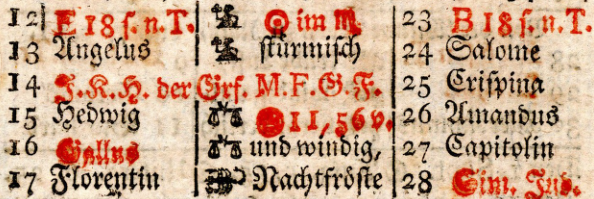 12 E 18 ſ. n. T. ☉ im ♏. 23 B 18 ſ. n. T.
13 Angelus ſtürmiſch 24 Salome
14 J. K. H. der Grſ. M. F. G. F. 25 Criſpina
15 Hedwig 11, 56 v. 26 Amandus
16 Gallus und windig, 27 Capitolin
17 Florentin Nachtfröſte 28 Sim. Jud.